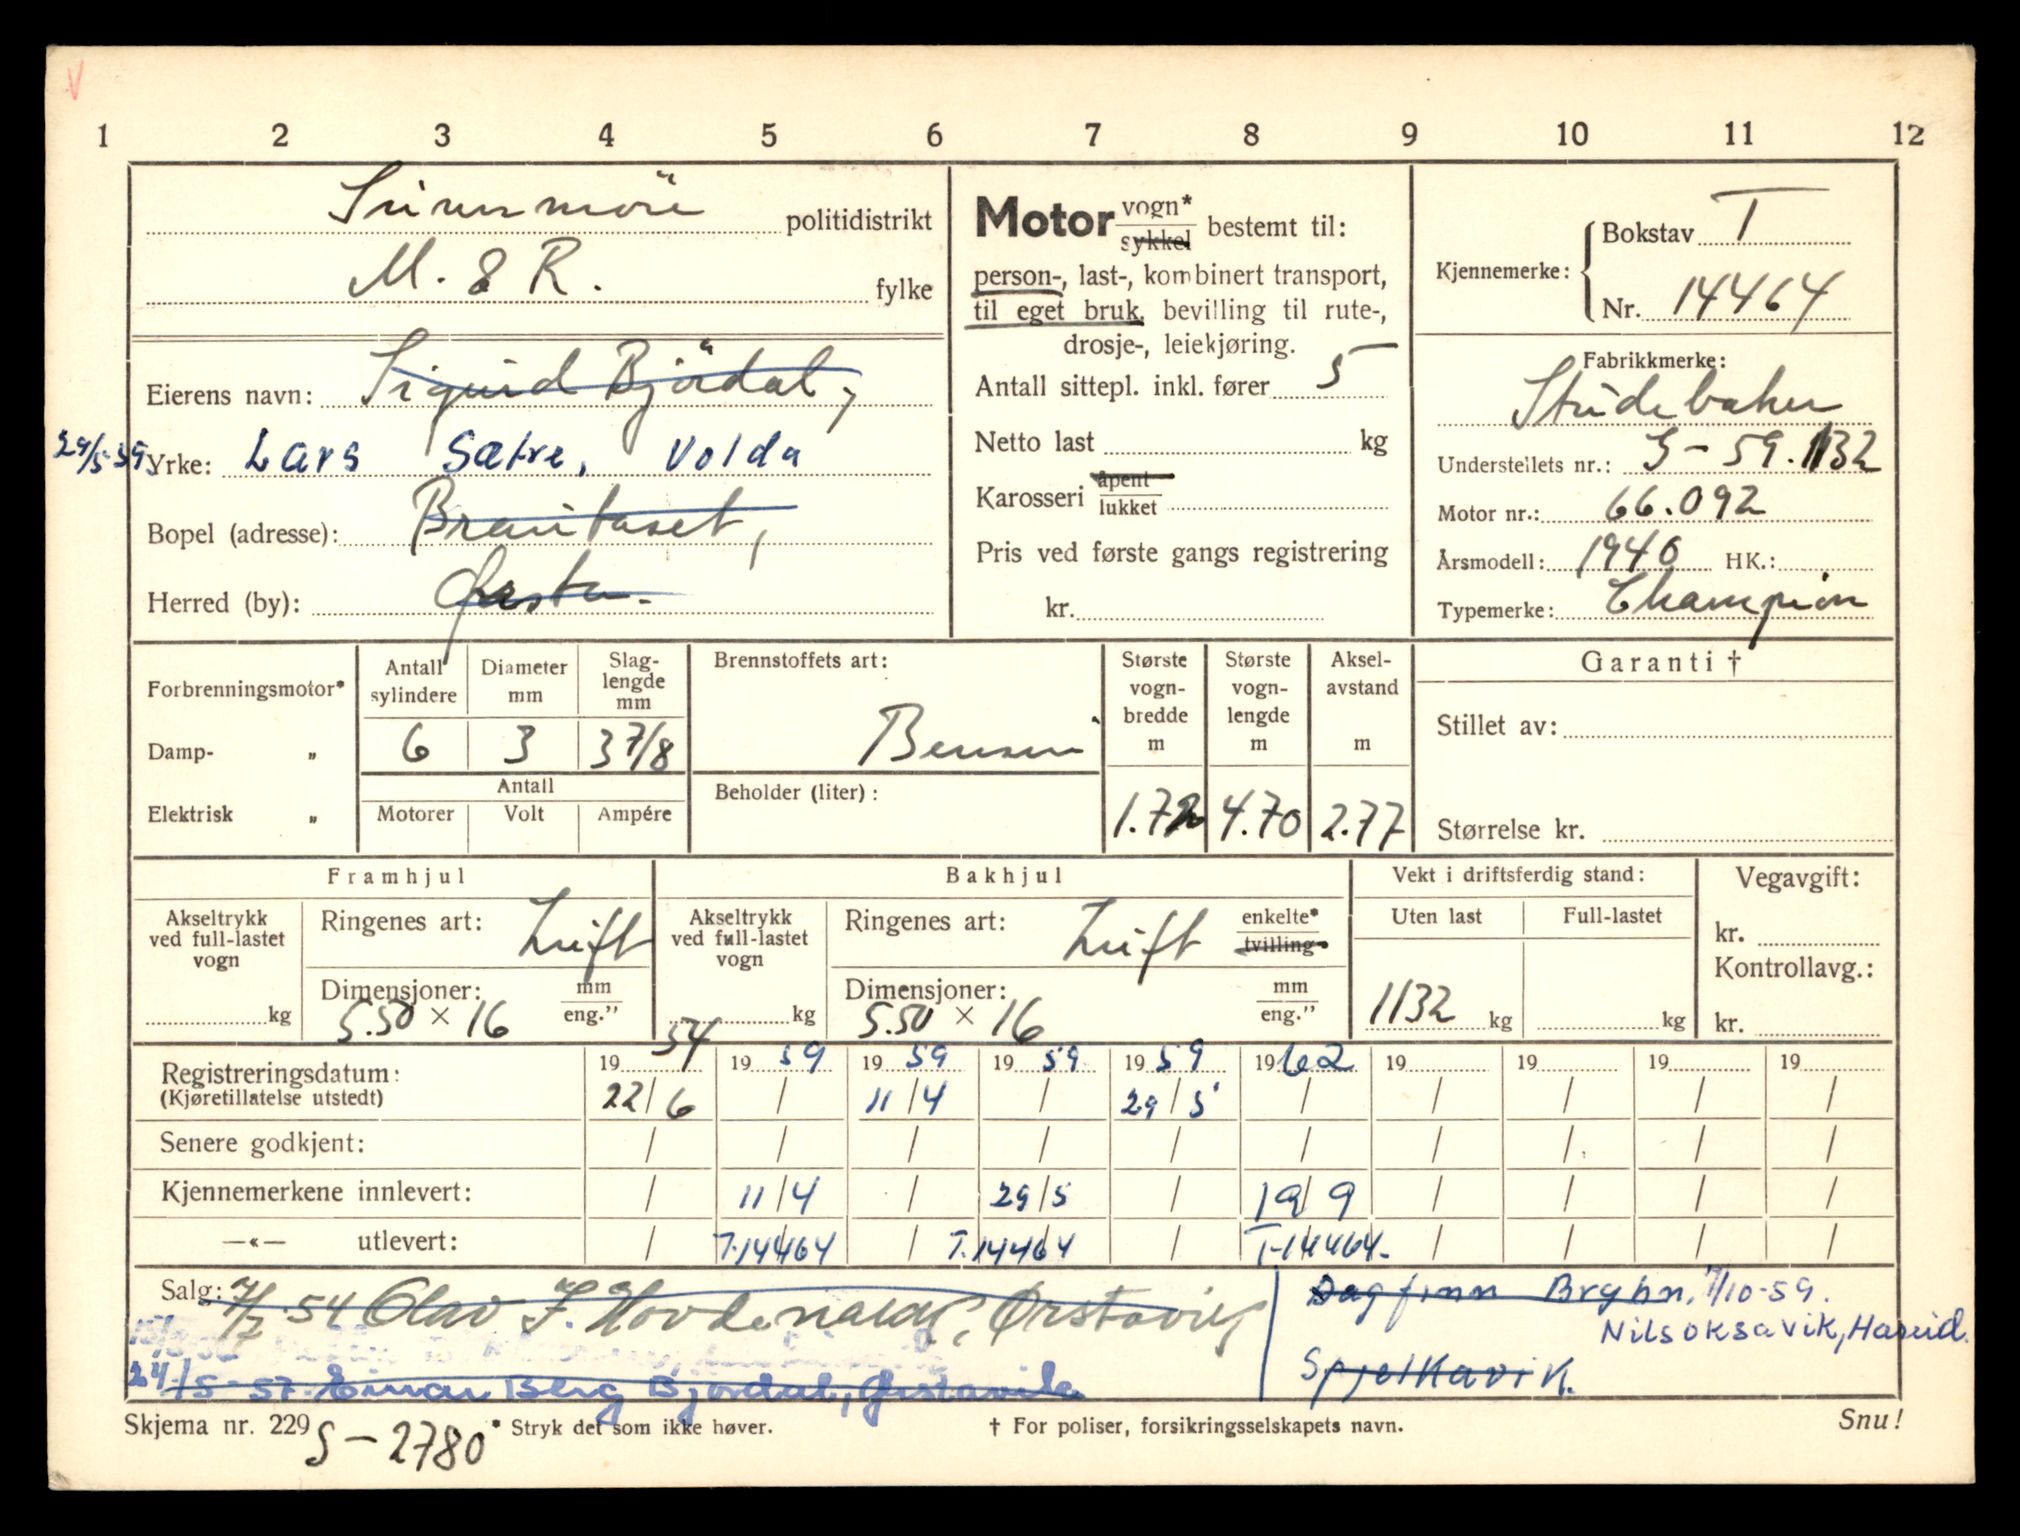 V
1 2 3 4 5 6 7 8 9 10 11 12
Sunnmöre politidistrikt
M. & R. fylke
Eierens navn: Sigurd Björdal,
29/5-59. Yrke: Lars Sætre, Volda
Bopel (adresse): Brautaset,
Herred (by): Ørsta.
Motor vogn* sykkel bestemt til:
person-, last-, kombinert transport,
til eget bruk, bevilling til rute-,
drosje-, leiekjøring.
Antall sittepl. inkl. fører 5
Netto last kg
Karosseri åpent lukket
Pris ved første gangs registrering
kr.
Kjennemerke: Bokstav T
Nr. 14464
Fabrikkmerke:
Studebaker
Understellets nr.: G-59.132
Motor nr.: 66.092
Årsmodell: 1940 HK.:
Typemerke: Champion
Forbrenningsmotor*
Damp- „
Elektrisk „
Antall sylindere Diameter mm Slag-lengde mm
6 3 3 7/8
Antall
Motorer Volt Ampére
Brennstoffets art:
Bensin
Beholder (liter):
Største vogn-bredde m Største vogn-lengde m Aksel-avstand m
1.72 4.70 2.77
Garanti †
Stillet av:
Størrelse kr.
Framhjul
Akseltrykk ved full-lastet vogn
kg
Ringenes art: Luft
Dimensjoner: mm eng."
5.50 × 16
Bakhjul
Akseltrykk ved full-lastet vogn
kg
Ringenes art: Luft enkelte* tvilling-
Dimensjoner: mm eng."
5.50 × 16
Vekt i driftsferdig stand:
Uten last Full-lastet
1132 kg kg
Vegavgift:
kr.
Kontrollavg.:
kr.
Registreringsdatum: 1954 1959 1959 1959 1959 1962 19 19 19 19
(Kjøretillatelse utstedt) 22/6 / 11/4 / 29/5 / / / / /
Senere godkjent: / / / / / / / / / /
Kjennemerkene innlevert: / 11/4 / 29/5 / 19/9 / / / /
—«— utlevert: / T.14464 / T.14464 / T-14464. / / / /
Salg: 7/7-54 Olav J. Hovdenakk, Ørstavik
24/5-57. Einar Berg Bjørdal, Ørstavik
Dagfinn Bryhn, 7/10-59.
Nils Oksavik, Hareid.
Spjelkavik.
Skjema nr. 229 S-2780 * Stryk det som ikke høver. † For poliser, forsikringsselskapets navn. Snu!